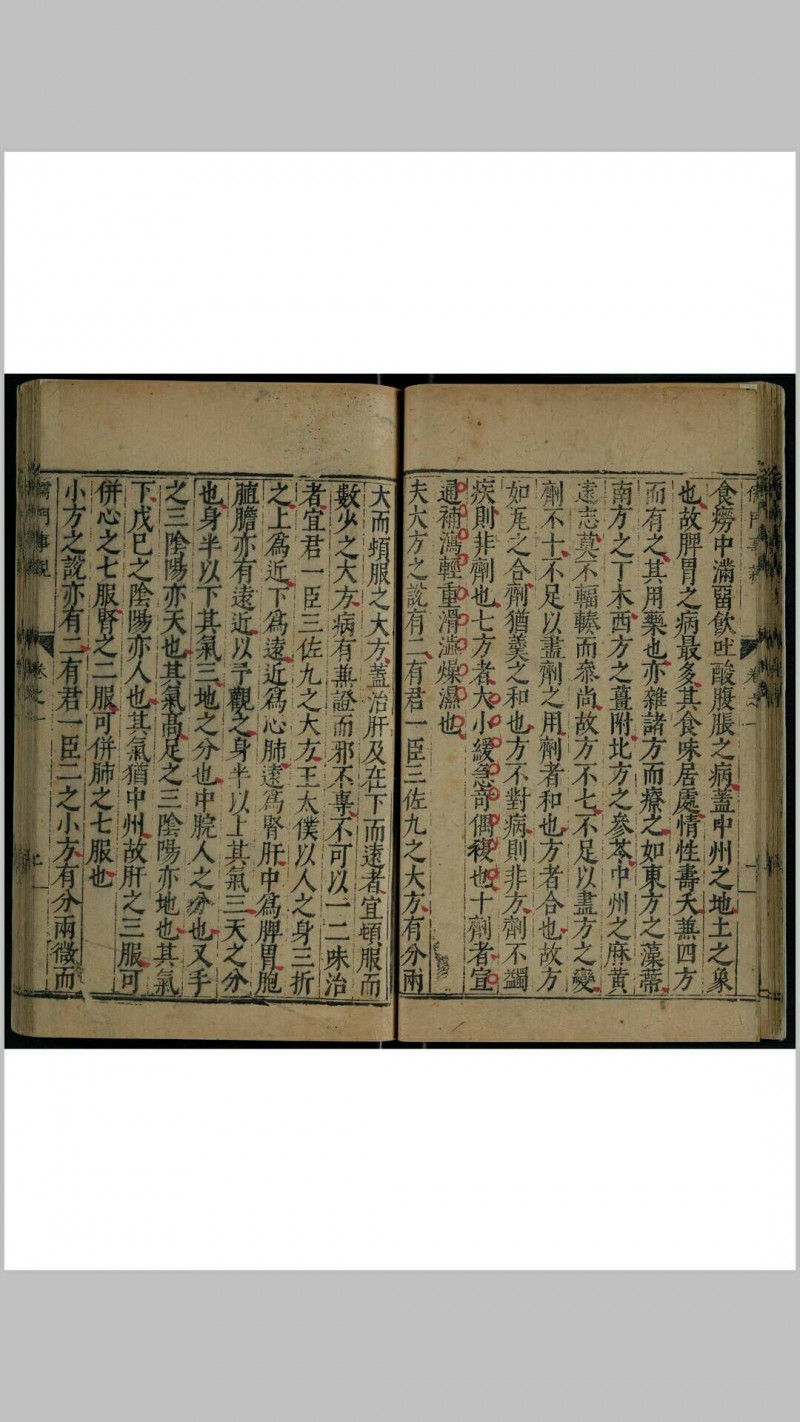 食癆中滿留飲吐酸腹脹之病蓋中州之地土之象
也故脾胃之病最多其食味居處情性壽夭兼四方
而有之其用藥也亦雜諸方而療之如東方之藻蔕
南方之丁木西方之薑附北方之參苓中州之麻黃
遠志莫不輻輳而叅尚故方不七不足以盡方之變
劑不十不足以盡劑之用劑者和也方者合也故方
如瓦之合劑猶羹之和也方不對病則非方劑不蠲
疾則非劑也七方者大小緩急竒偶複也十劑者宣
通補瀉輕重滑澁燥濕也
夫大方之說有二有君一臣三佐九之大方有分兩
大而頓服之大方蓋治肝及在下而遠者宜頓服而
數少之大方病有兼證而邪不專不可以一二味治
者宜君一臣三佐九之大方王太僕以人之身三折
之上爲近下爲遠近爲心肺遠爲腎肝中爲脾胃胞
䐈膽亦有遠近以予觀之身半以上其氣三天之分
也身半以下其氣三地之分也中脘人之分也又手
之三陰陽亦天也其氣高足之三陰陽亦地也其氣
下戊巳之陰陽亦人也其氣猶中州故肝之三服可
併心之七服腎之二服可併肺之七服也
小方之說亦有二有君一臣二之小方有分兩微而
儒門事親
卷之一